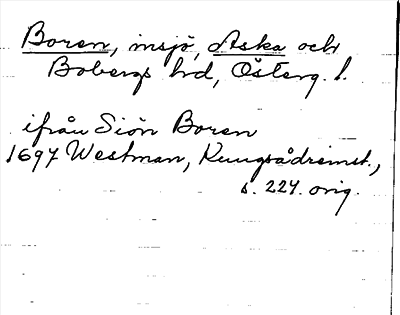 Boren, insjö, Aska och
Bobergs hrd, Österg. l.
ifrån Siön Boren
1697 Westman, Kungsådremst.,
s. 227. orig.